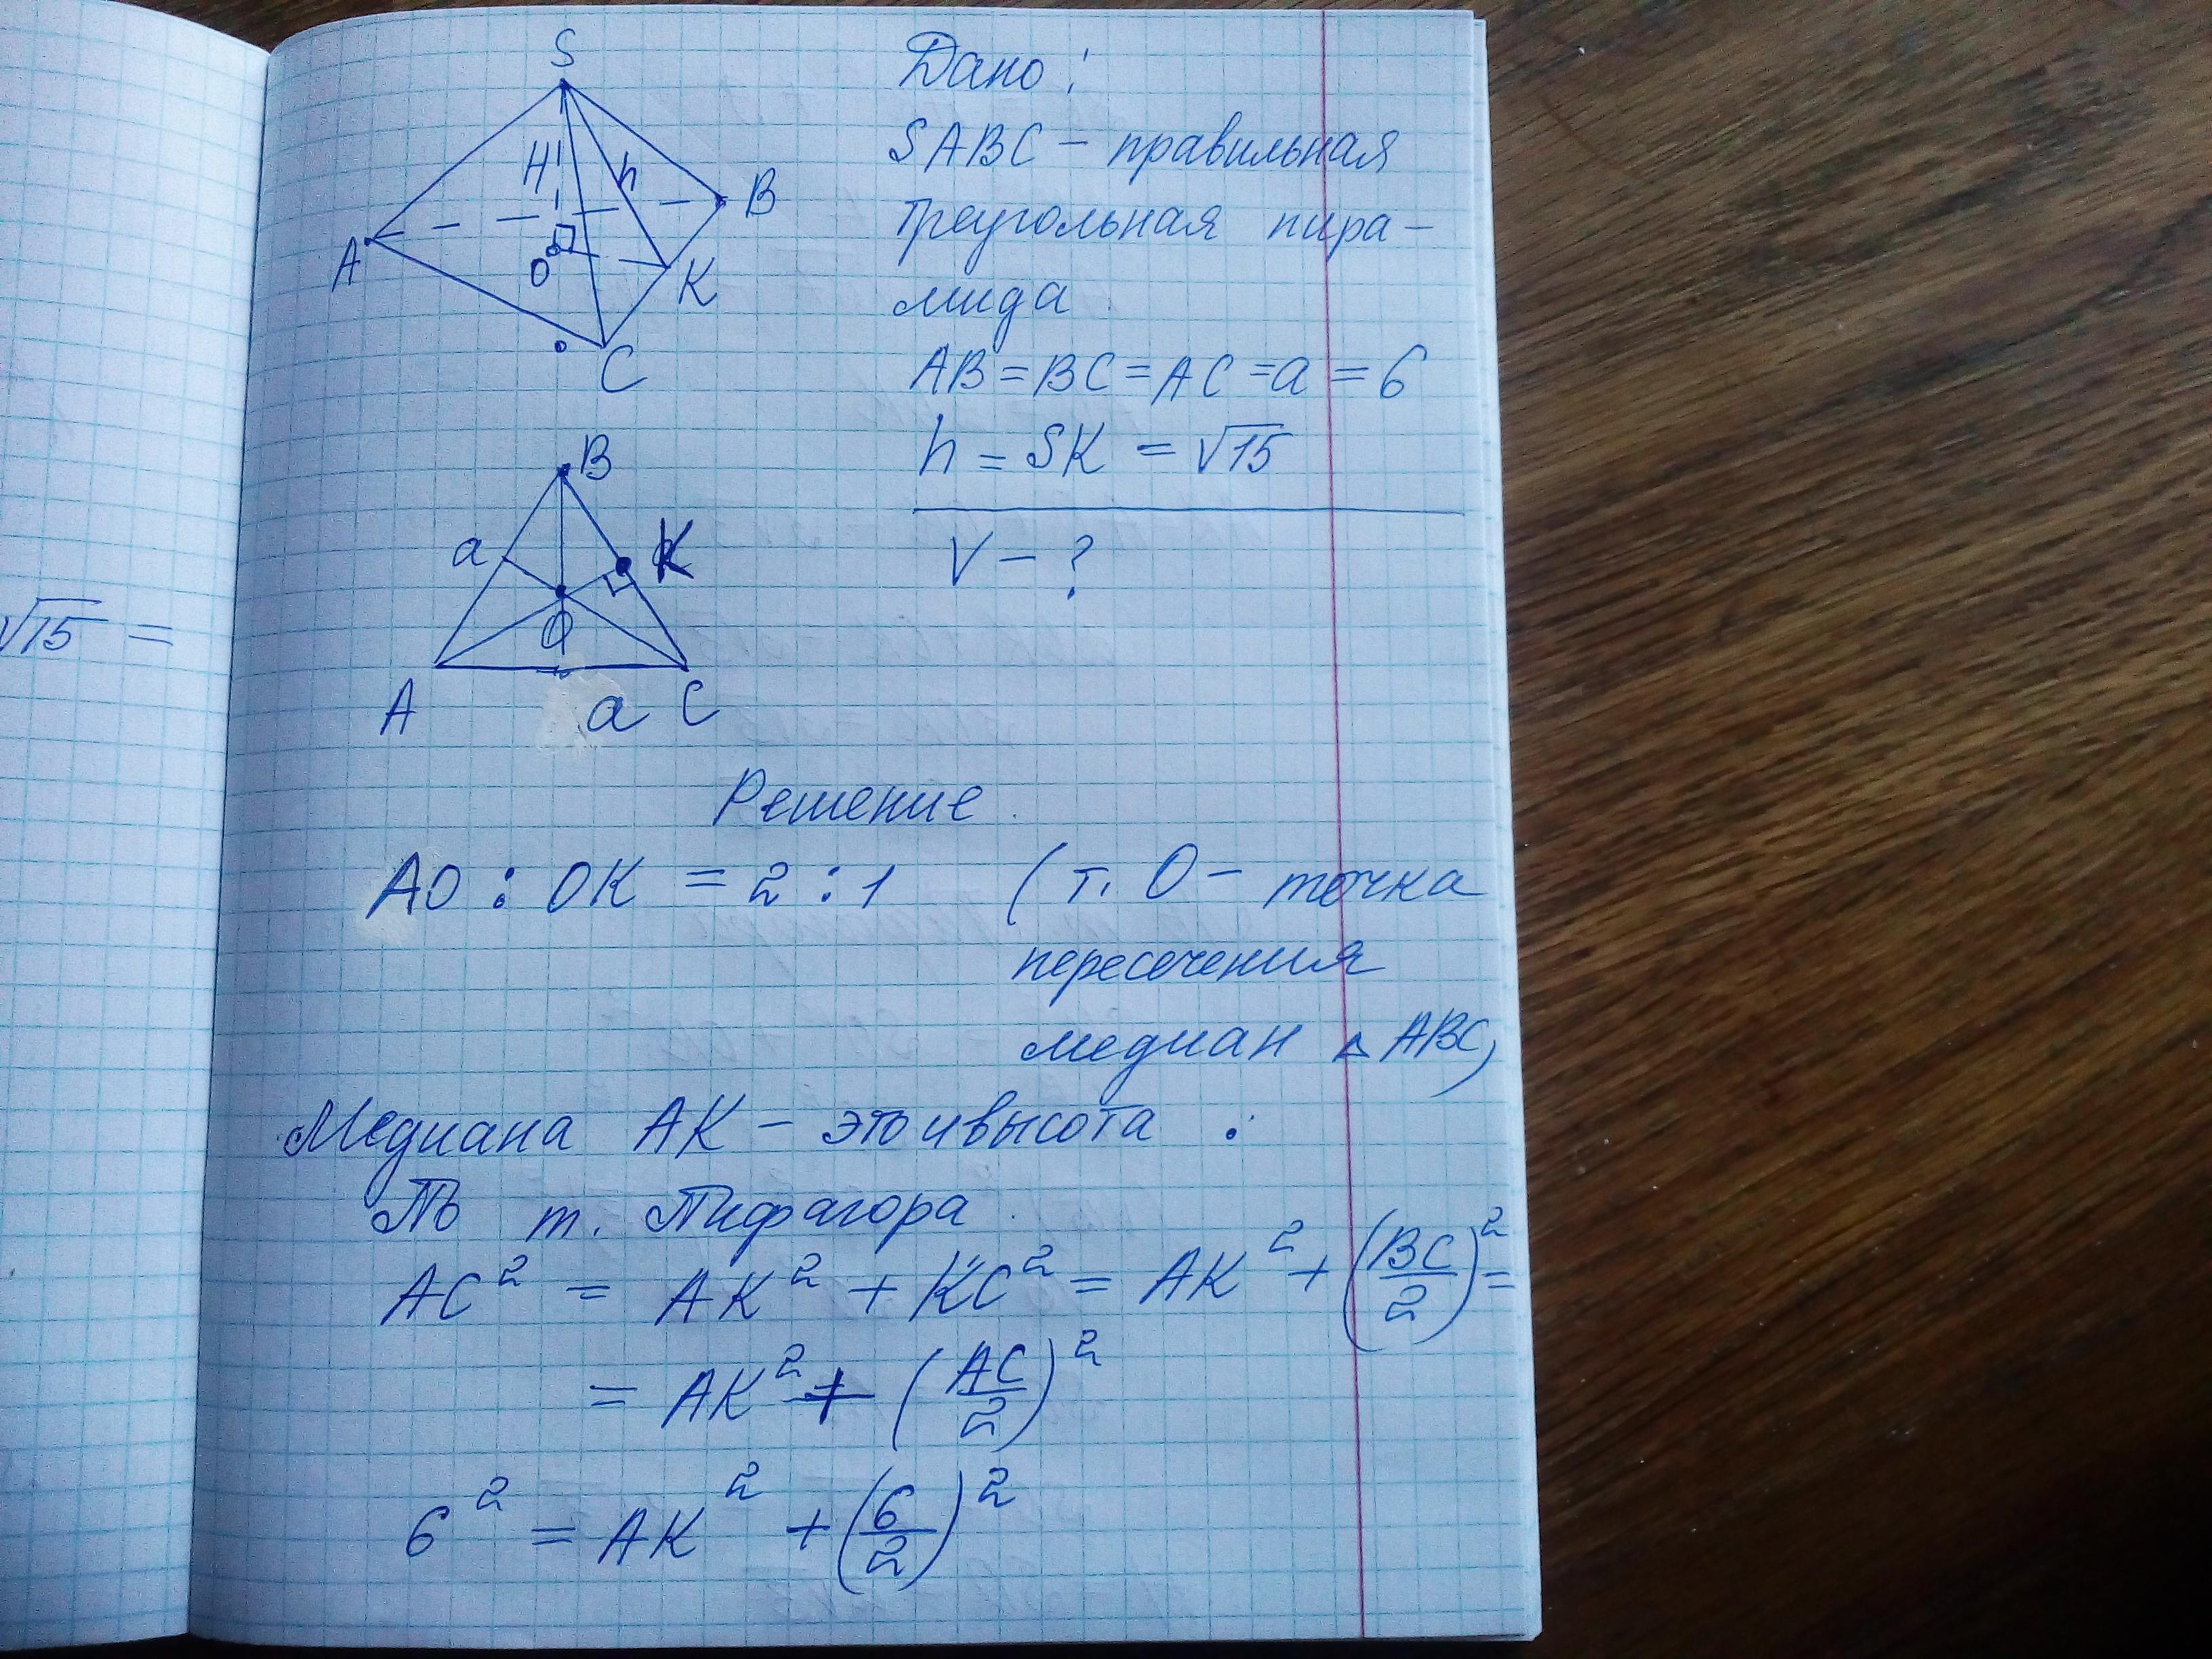 √15 =
S
H
h
A
B
O
K
C
Дано:
SABC – правильная
треугольная пира-
мида.
AB = BC = AC = a = 6
h = SK = √15
V – ?
B
a
K
O
A
a
C
Решение.
AO : OK = 2 : 1 (т. O – точка
пересечения
медиан △ ABC)
Медиана AK – это и высота.
По т. Пифагора.
AC² = AK² + KC² = AK² + (BC/2)² =
= AK² + (AC/2)²
6² = AK² + (6/2)²